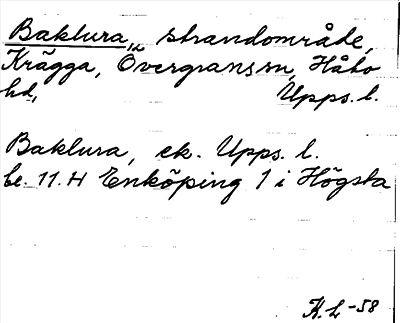 Baklura, strandområde,
Krägga, Övergrans sn, Håbo
hd, Upps. l.
Baklura, ek. Upps. l.
be. 11. H Enköping 1 i Högsta
K. L -58